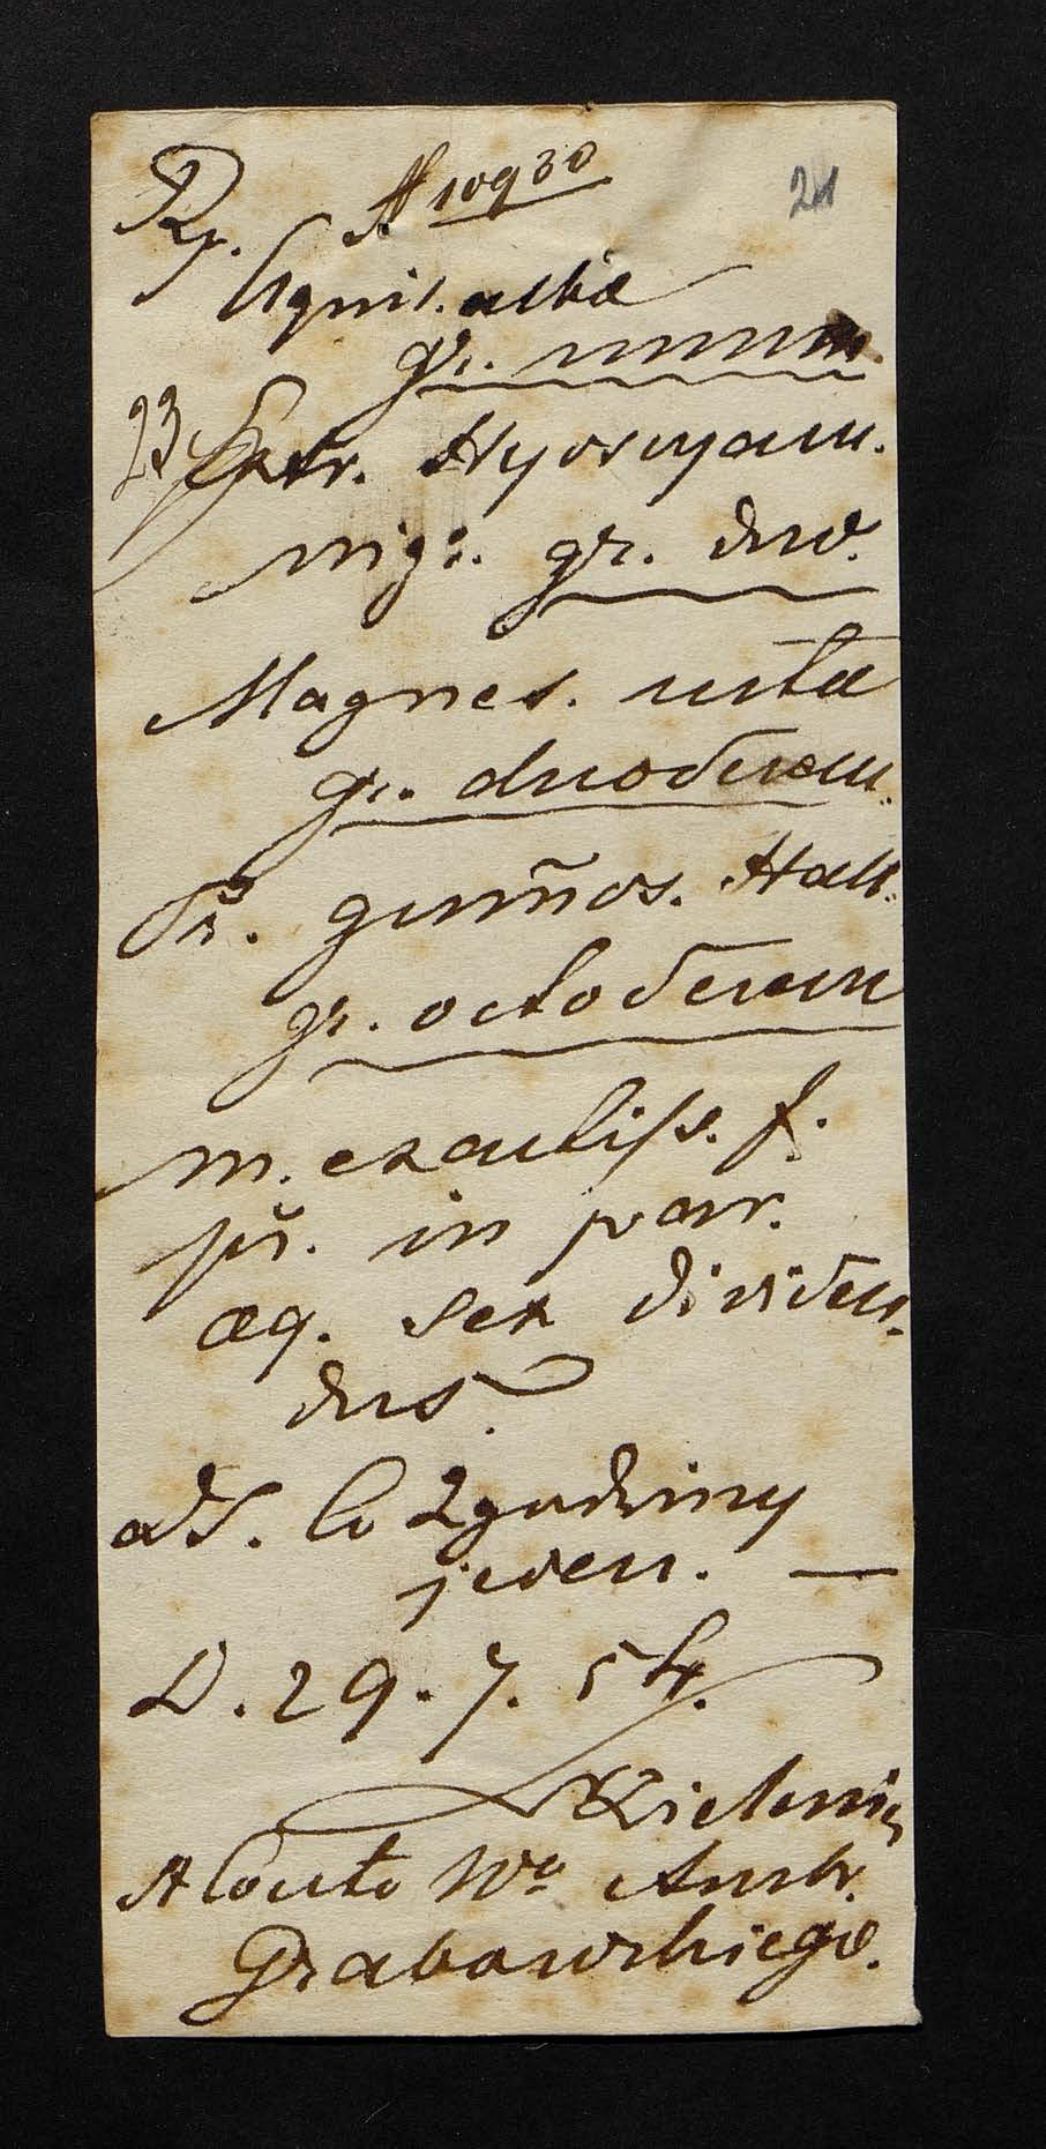 Rp. № 10930
21
Aquil. albæ
gr. unum
23 Extr. Hyoscyam.
nigr. gr. duo.
Magnes. ustæ
gr. duodecem.
Pr. gum̃os. Hall.
gr. octodecem
m. exactiss. f.
pŭ. in par.
æq. sex dividen.
dus.
dS. Co 2 godziny
jeden. —
D. 29. 7. 54.
A Conto Wo Ambr.
Grabowskiego.